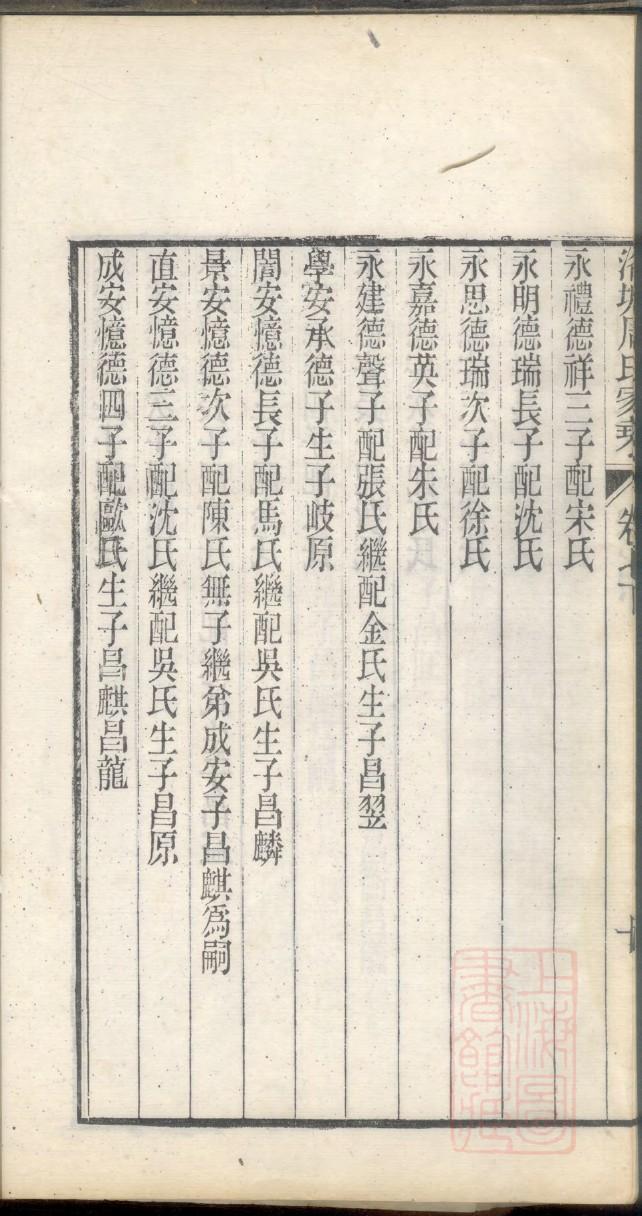 周氏家乘 卷七
永禮德祥三子配宋氏
永明德瑞長子配沈氏
永思德瑞次子配徐氏
永嘉德英子配朱氏
永建德聲子配張氏繼配金氏生子昌翌
學安承德子生子岐原
闇安憶德長子配馬氏繼配吳氏生子昌麟
景安憶德次子配陳氏無子繼弟成安子昌麒為嗣
直安憶德三子配沈氏繼配吳氏生子昌原
成安憶德四子配歐氏生子昌麒昌龍
上海圖書館藏